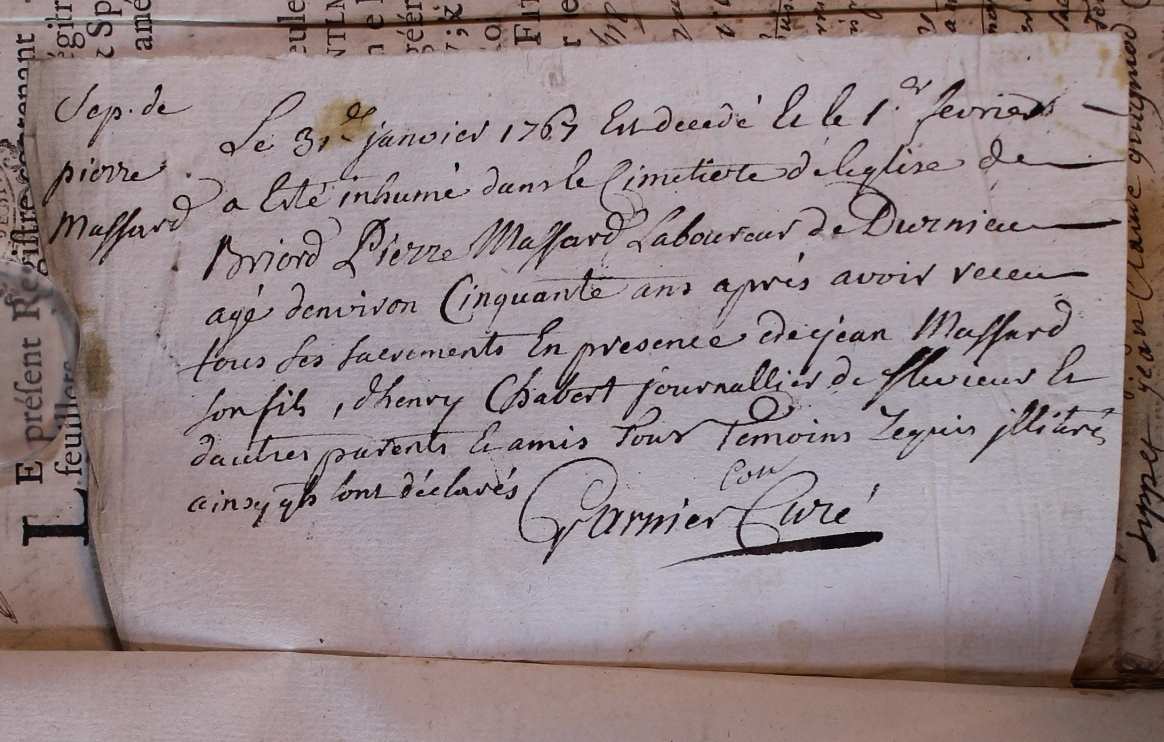 Sep. de
pierre
Massard
Le 31.e janvier 1767 Est decedé Et le 1.er fevrier
a Esté inhumé dans le Cimetiere de leglise de
Briord Pierre Massard Laboureur de Durnieu
agé denviron Cinquante ans après avoir receu
tous ses sacrements En presence de jean Massard
son fils, dhenry Chabert journallier de flevieux Et
dautres parents Et amis Tous Temoins Requis illitéré
ainsy qils sont déclarés
Garnier Curé
LE présent Registre
feuillets
jean Claude